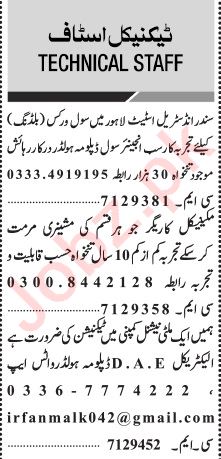 ٹیکنیکل اسٹاف
TECHNICAL STAFF
سندر انڈسٹریل اسٹیٹ لاہور میں سول ورکس (بلڈنگ)
کیلئے تجربہ کار سب انجینئر سول ڈپلومہ ہولڈر درکار رہائش
موجود تنخواہ 30 ہزار رابطہ 0333.4919195
سی ایم۔ 7129381
مکینیکل کاریگر جو ہر قسم کی مشینری مرمت
کر سکے تجربہ کم از کم 10 سال تنخواہ حسب قابلیت و
تجربہ رابطہ 0300.8442128
سی ایم۔ 7129358
ہمیں ایک ملٹی نیشنل کمپنی میں ٹیکنیشن کی ضرورت ہے
الیکٹریکل D.A.E ڈپلومہ ہولڈر واٹس ایپ
0336-7774222 ،
irfanmalk042@gmail.com
سی ایم۔ 7129452